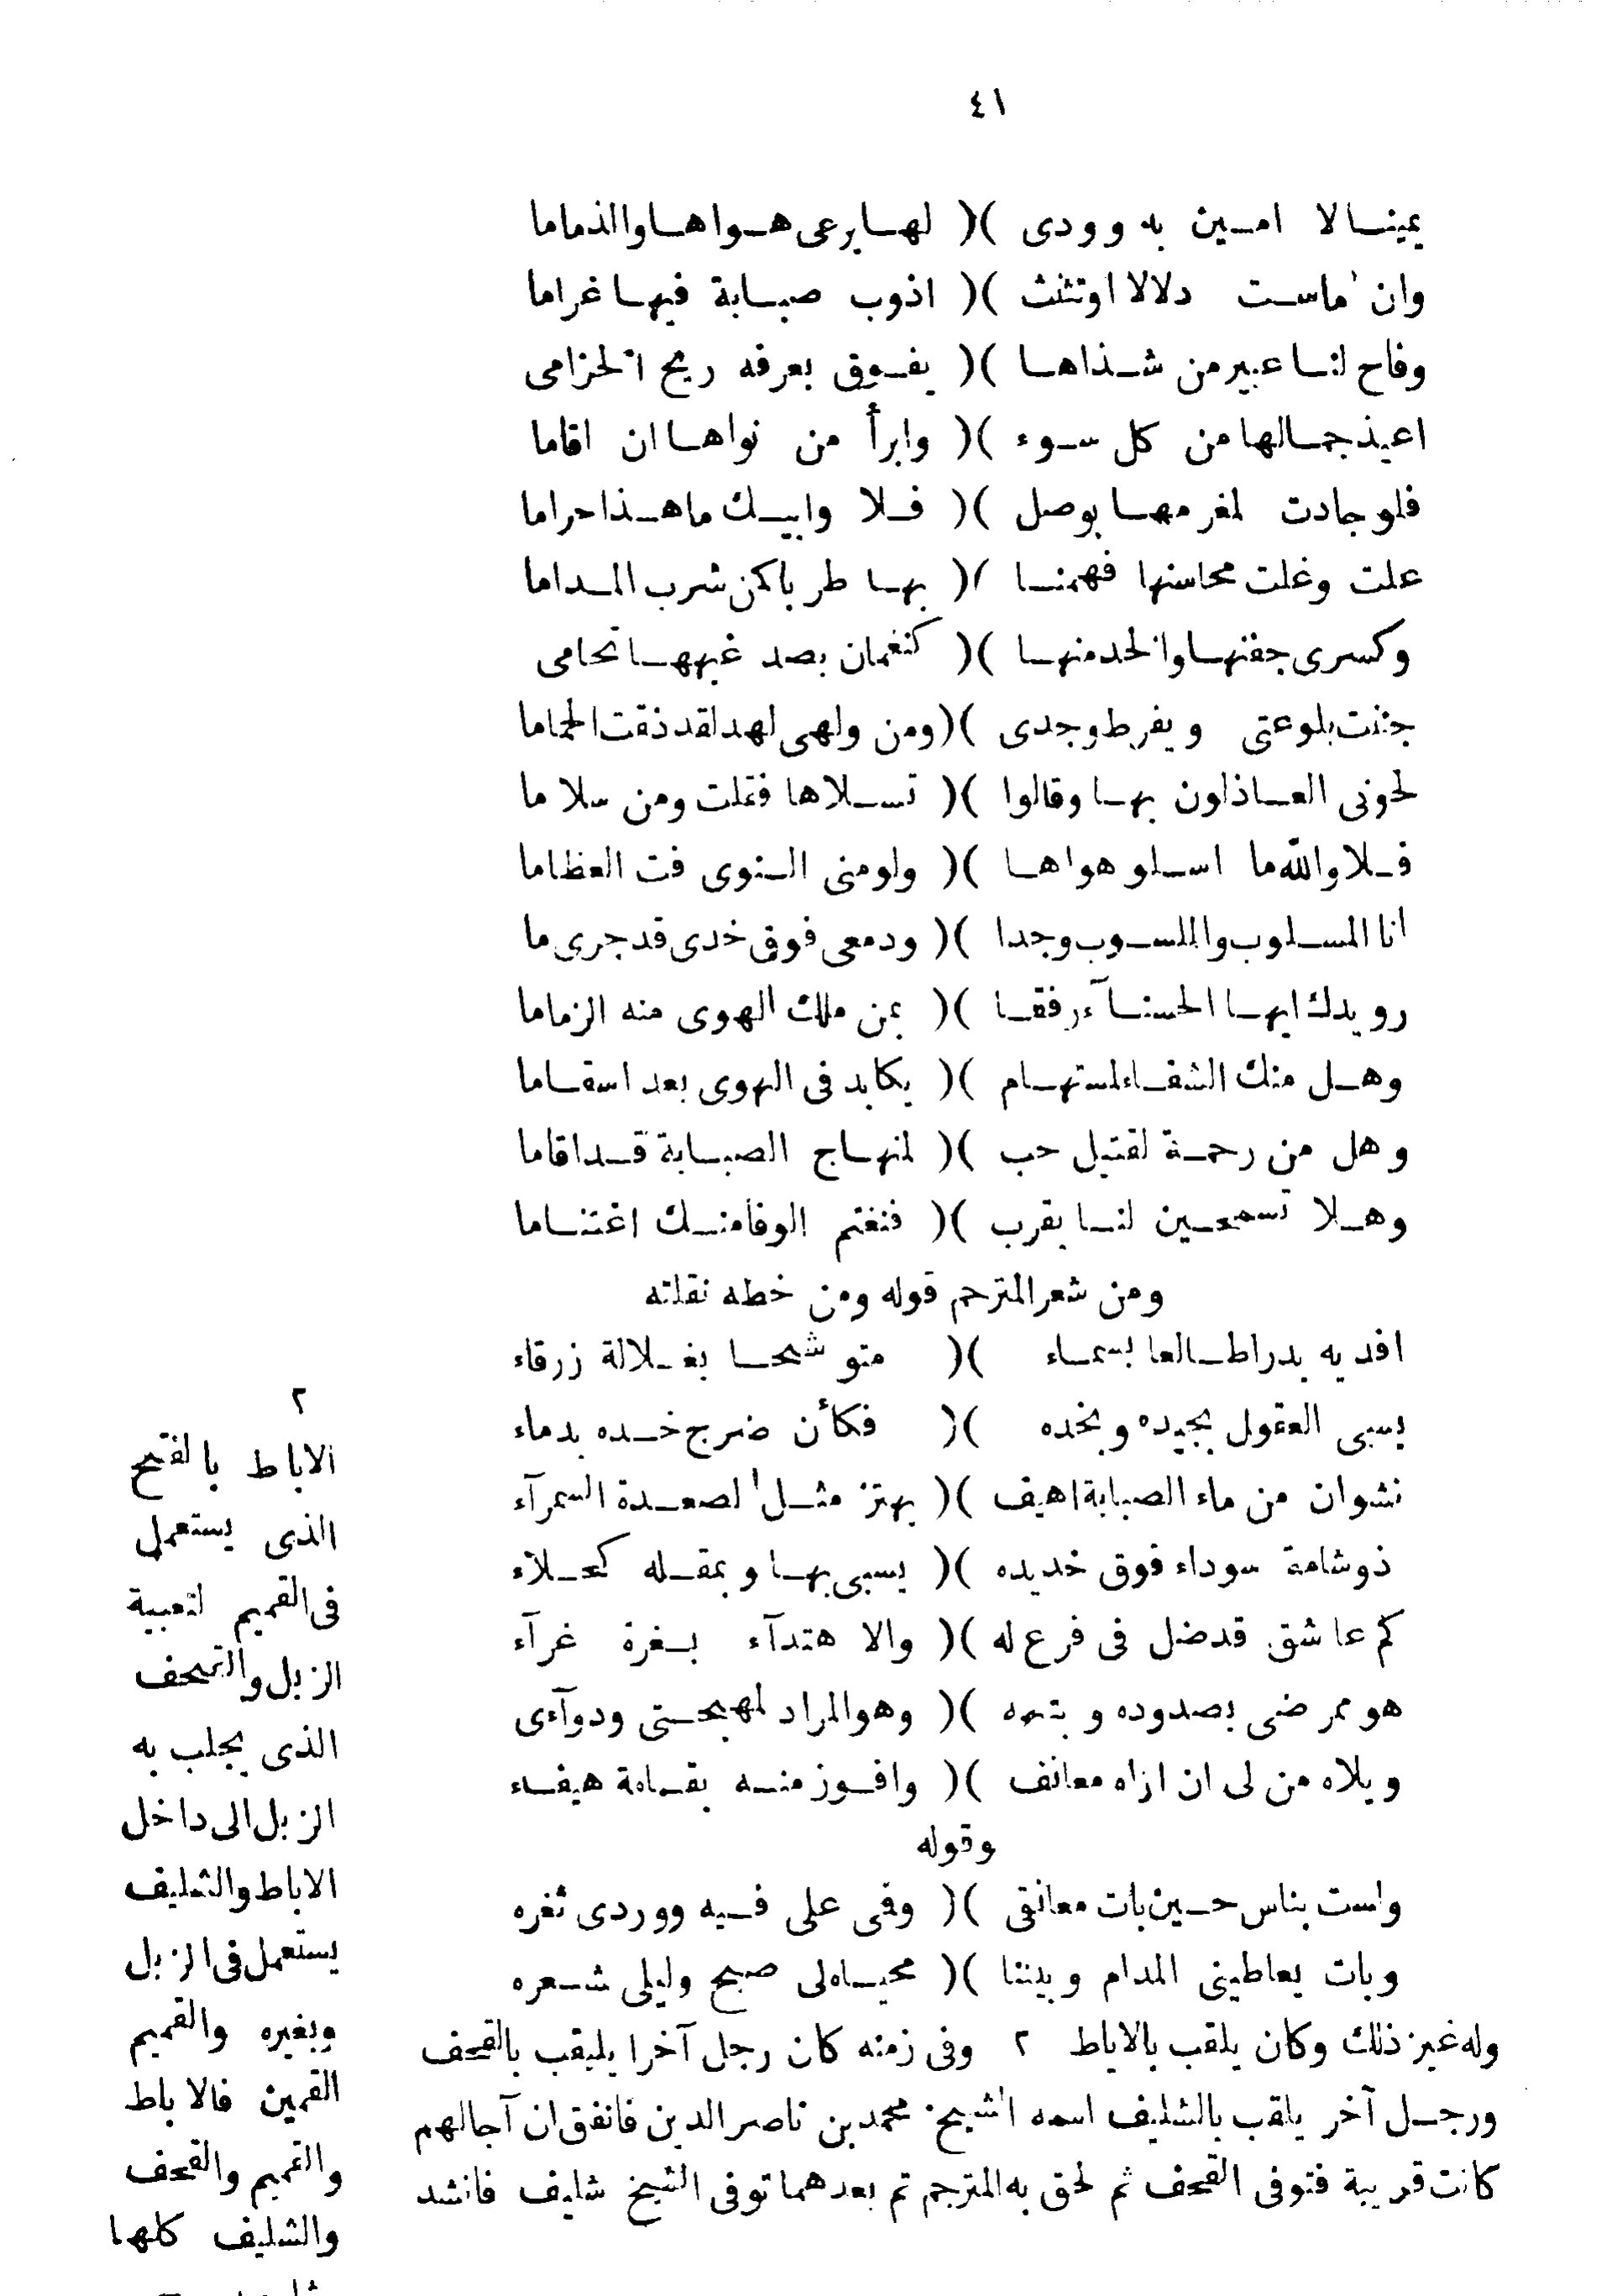 ٤١
يمينا لا امين به وودى )( لها يرعى هواها والذماما
وان ماست دلالا اوتثنت )( اذوب صبابة فيها غراما
وفاح لنا عبير من شذاها )( يفوق بعرفه ريح الخزامى
اعيذ جمالها من كل سوء )( وابرأ من نواها ان اقاما
فلو جادت لمغرمها بوصل )( فلا وابيك ماهذا حراما
علت وغلت محاسنها فهمنا )( بها طربا كمن شرب المداما
وكسرى جفنها والخد منها )( كنعمان بصد تحامى
جننت بلوعتى وبفرط وجدى )( ومن ولهى لهد لقد ذقت الحماما
لحونى العاذلون بها وقالوا )( تسلاها فقلت ومن سلا ما
فلا والله ما اسلو هواها )( ولو منى النوى فت العظاما
انا المسلوب والملسوب وجدا )( ودمعى فوق خدى قد جرى ما
رويدك ايها الحسنآء رفقا )( بمن ملك الهوى منه الزماما
وهل منك الشفاء لمستهام )( يكابد فى الهوى بعد اسقاما
وهل من رحمة لقتيل حب )( لمنهاج الصبابة قد اقاما
وهلا تسمحين لنا بقرب )( فنغتم الوفا منك اغتناما
ومن شعر المترجم قوله ومن خطه نقلته
افديه بدرا طالعا بسماء )( متوشحا بغلالة زرقاء
يسبى العقول بجيده وبخده )( فكأن ضرج خده بدماء
نشوان من ماء الصبابة اهيف )( يهتز مثل الصعدة السمرآء
ذوشامة سوداء فوق خديده )( يسبى بها وبمقله كحلاء
كم عاشق قدضل فى فرع له )( والاهتدآء بغرة غرآء
هو ممرضى بصدوده وبتيهه )( وهو المراد لمهجتى ودوآءى
ويلاه من لى ان اراه معانقى )( وافوز منه بقامة هيفاء
وقوله
ولست بناس حين بات معانقى )( وفى على فيه ووردى ثغره
وبات يعاطينى المدام وبيننا )( محياه لى صبح وليلى شعره
وله غير ذلك وكان يلقب بالاباط ٢ وفى زمنه كان رجل آخرا يلقب بالقحف
ورجل آخر يلقب بالشليف اسمه الشيخ محمد بن ناصر الدين فاتفق ان آجالهم
كانت قريبة فتوفى القحف ثم لحق به المترجم ثم بعدهما توفى الشيخ شليف فانشد
٢
الاباط بالفتح
الذى يستعمل
فى القميم لتعبية
الزبل والقحف
الذى يجلب به
الزبل الى داخل
الاباط والشليف
يستعمل فى الزبل
وبغيره والقميم
القمين فالاباط
والقميم والقحف
والشليف كلها